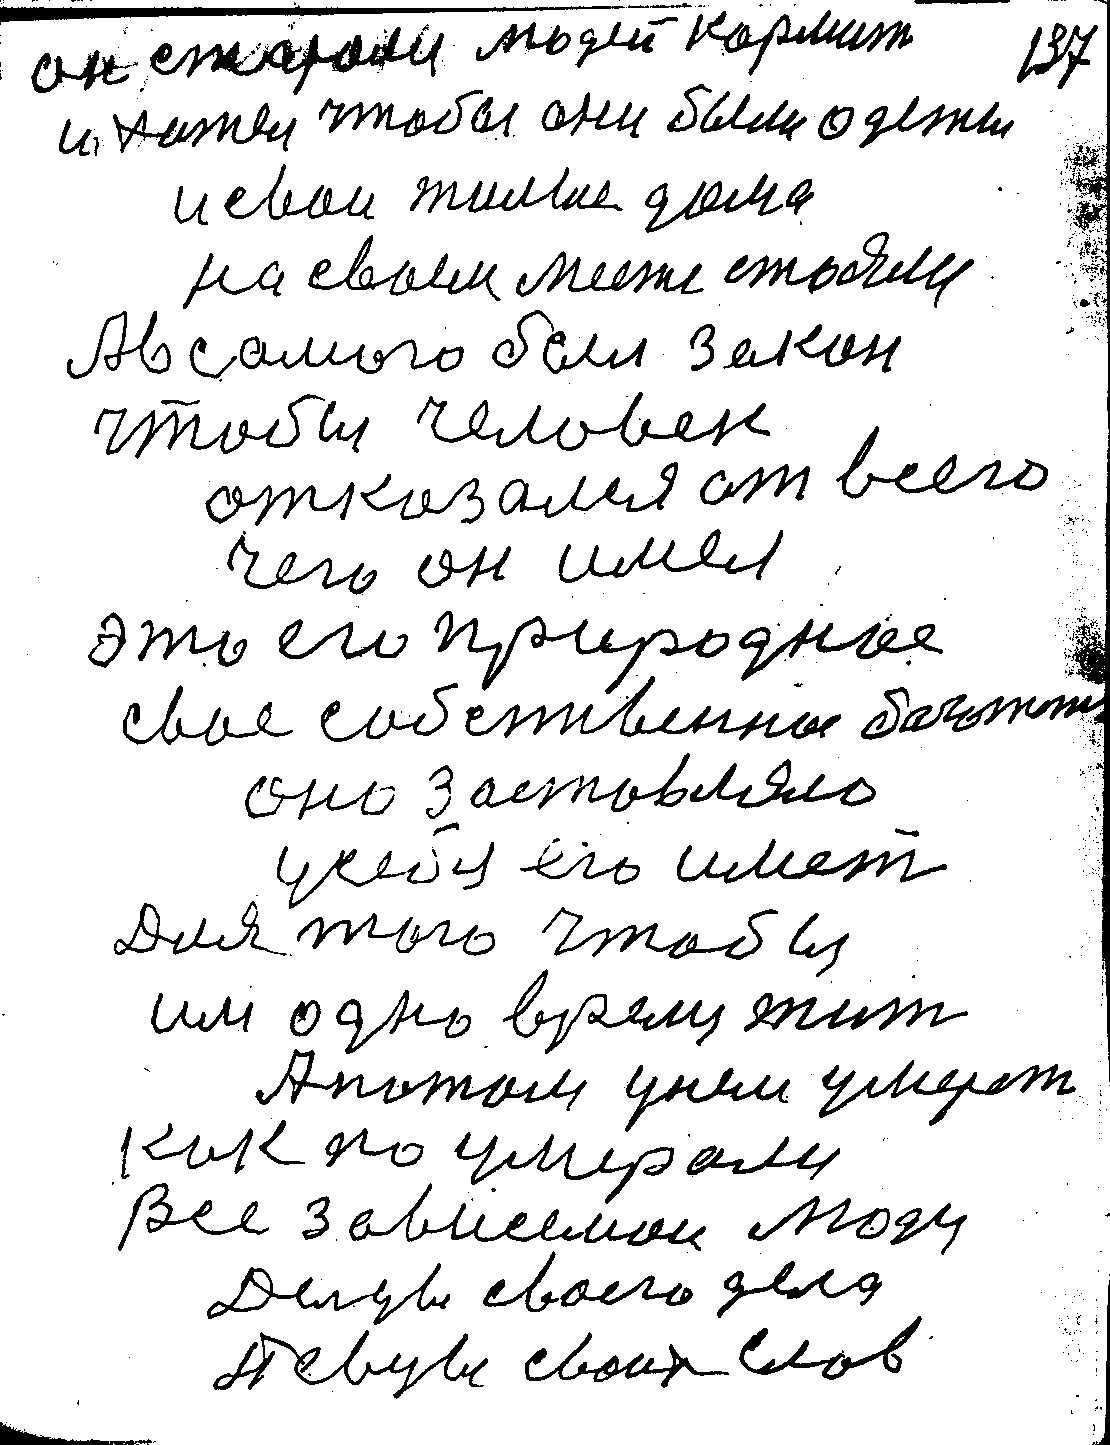 он старали людей кормит 137
и также чтобы они были одеты
и свои жилые дома
на своем месте стояли
А в самого был закон
чтобы человек
отказался от всего
чего он имел
это его природное
свое собственное богатств
оно заставляло
у себя его имет
Для того чтобы
им одно время жит
А потом у нем умерат
как по умерали
Все зависемои люди
Делцы своего дела
Певцы своих слов